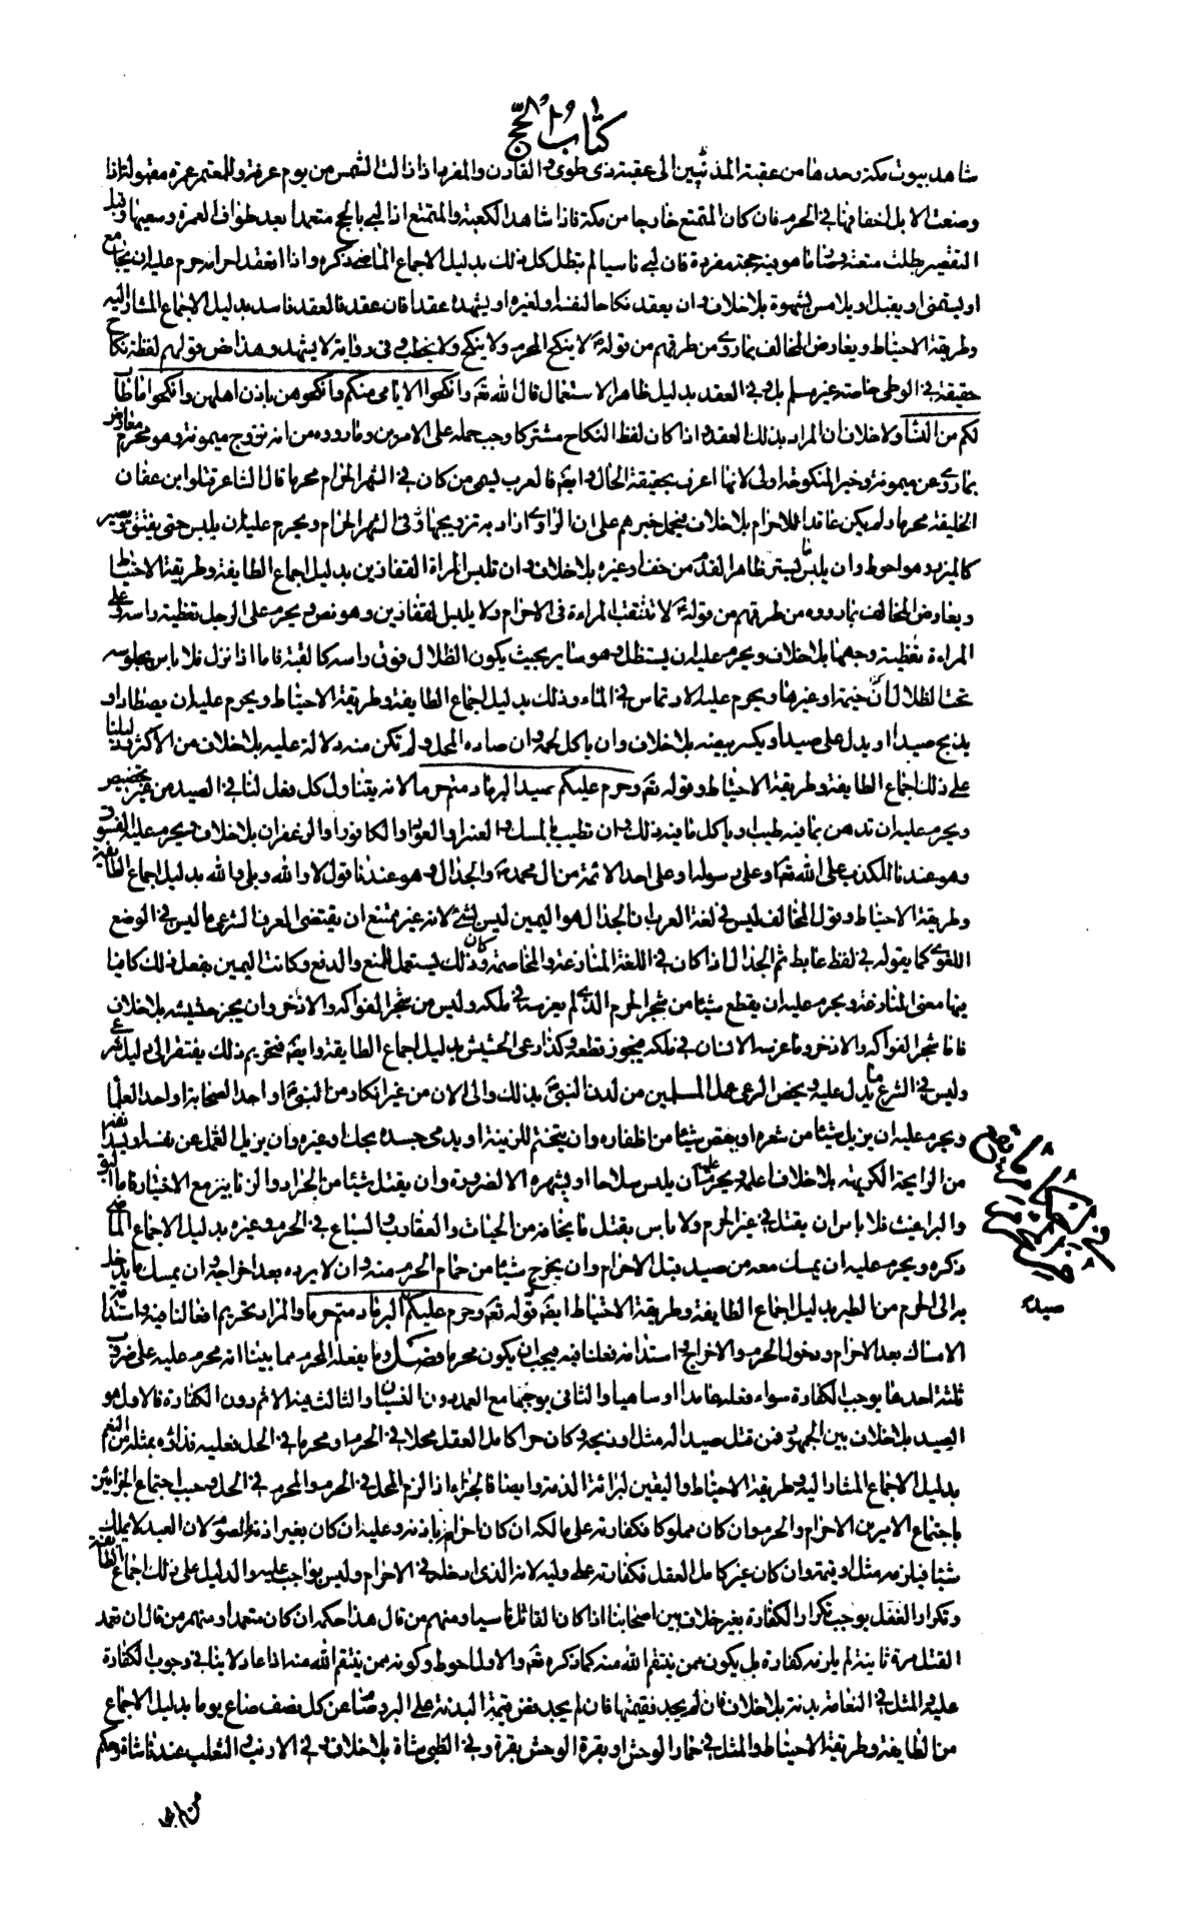 كتاب الحج
شاهد بيوت مكة وحدها من عقبة المدنيين الى عقبة ذى طوى و القارن والمفرد اذا زالت الشمس من يوم عرفة وللمعتمر عمرة مقبولة اذا
وضعت الابل اخفافها فى الحرم فان كان المتمتع خارجا من مكة فاذا شاهد الكعبة والمتمتع اذا لبى بالحج متعمدا بعد طواف العمرة وسعيها وقبل
التقصير بطلت متعته وصار ما هو فيه حجة مفردة فان لبى ناسيا لم تبطل كل ذلك بدليل الاجماع الماضى ذكره واذا انعقد احرامه حرم عليه ان يجامع
او يستمنى او يقبل او يلامس بشهوة بلا خلاف و ان يعقد نكاحا لنفسه او لغيره او يشهد عقدا فان عقد فالعقد فاسد بدليل الاجماع المشار اليه
وطريقة الاحتياط ويعارض المخالف بما روى من طرقهم من قوله لا ينكح المحرم ولا ينكح ولا يخطب وفى رواية لا يشهد وهذا نص وقولهم لفظة نكاح
حقيقة فى الوطى خاصة غير مسلم بل فى العقد بدليل ظاهر الاستعمال قال الله تعه وانكحوا الايامى منكم وانكحوهن باذن اهلهن وانكحوا ما طاب
لكم من النساء ولا خلاف ان المراد بذلك العقد و اذا كان لفظ النكاح مشتركا وجب حمله على الامرين وما رووه من انه تزوج ميمونة وهو محرم معارض
بما روى عن ميمونة وخبر المنكوحة اولى لانها اعرف بحقيقة الحال و ايضا فالعرب يسمى من كان فى الشهر الحرام محرما قال الشاعر قتلوا ابن عفان
الخليفة محرما ولم يكن عاقدا للاحرام بلا خلاف فيحمل خبرهم على ان الراوى اراد به تزويجها فى الشهر الحرام ويحرم عليه ان يلبس حتى يفتق ويصير
كالمئزر و هو احوط وان يلبس ما يستر ظاهر القدم من خف او غيره بلا خلاف و ان تلبس المراة القفازين بدليل اجماع الطايفة وطريقة الاحتياط
ويعارض المخالف بما رووه من طرقهم من قوله لا تنتقب المراة فى الاحرام ولا يلبس القفازين وهو نص و يحرم على الرجل تغطية راسه وعلى
المراة تغطية وجهها بلا خلاف ويحرم عليه ان يستظل و هو ساير بحيث يكون الظلال فوق راسه كالقبة فاما اذا نزل فلا باس بجلوسه
تحت الظلال من خيمة او غيرها ويحرم عليه الارتماس فى الماء وذلك بدليل اجماع الطايفة وطريقة الاحتياط ويحرم عليه ان يصطاد او
يذبح صيدا او يدل على صيد او يكسر بيضه بلا خلاف وان ياكل لحمه و ان صاده المحل و لم تكن منه دلالة عليه بلا خلاف من الاكثر و دليلنا
على ذلك اجماع الطايفة وطريقة الاحتياط وقوله تعه وحرم عليكم صيد البر ما دمتم حرما لانه يتناول كل فعل لنا فى الصيد من غير تخصيص
ويحرم عليه ان تدهن بما فيه طيب او ياكل ما فيه ذلك و ان تطيب بالمسك و العنبر او العود او الكافور او الزعفران بلا خلاف و يحرم عليه الفسوق
وهو عندنا الكذب على الله تعه او على رسوله او على احد الائمة من ال محمد والجدال و هو عندنا قول لا والله وبلى والله بدليل اجماع الطايفة
وطريقة الاحتياط وقول المخالف ليس فى لغة العرب ان الجدال هو اليمين ليس بشئ لانه غير ممتنع ان يقتضى العرف الشرعى ما ليس فى الوضع
اللغوى كما يقوله فى لفظ غايط ثم الجدال اذا كان فى اللغة المنازعة والمخاصمة وكان ذلك يستعمل للمنع والدفع وكانت اليمين يفعل ذلك كان فيها
معنى المنازعة ويحرم عليه ان يقطع شيئا من شجر الحرم الذى لم يغرسه فى ملكه وليس من شجر الفواكه والاذخر وان يجز حشيشه بلا خلاف
فاما شجر الفواكه والاذخر وما غرسه الانسان فى ملكه فيجوز قطعه وكذا رعى الحشيش بدليل اجماع الطايفة وايضا فتحريم ذلك يفتقر الى دليل شرعى
وليس فى الشرع ما يدل عليه و يخص الرعى عمل المسلمين من لدن النبى بذلك والى الان من غير انكار من النبى او احد الصحابة او احد العلماء
ويحرم عليه ان يزيل شيئا من شعره او يقص شيئا من اظفاره وان يتختم للزينة او يدمى جسده بحك او غيره وان يزيل القمل عن نفسه او يسد انفه
من الرايحة الكريهة بلا خلاف اعلمه و يحرم عليه ان يلبس سلاحا او يشهره الا لضرورة وان يقتل شيئا من الجراد والزنابير مع الاختيار فاما البق
والبراغيث فلا باس ان يقتل فى غير الحرم ولا باس بقتل ما يخافه من الحيات والعقارب و السباع فى الحرم و غيره بدليل الاجماع الماضى
ذكره ويحرم عليه ان يمسك معه من صيد قبل الاحرام وان يخرج شيئا من حمام الحرم منه و ان لا يرده بعد اخراجه و ان يمسك ما يدخل
به الى الحرم من الطير بدليل اجماع الطايفة وطريقة الاحتياط ايضا قوله تعه وحرم عليكم صيد البر ما دمتم حرما والمراد تحريم افعالنا فيه واستدامة
الامساك بعد الاحرام ودخول الحرم والاخراج استدامة فعلنا فيه فيجب ان يكون محرما فصل وما يفعله المحرم مما بينا انه محرم عليه على ضروب
ثلثة احدها يوجب الكفارة سواء فعله عامدا او ساهيا والثانى يوجبها مع العمد دون النسيان والثالث فيه الاثم دون الكفارة فالاول هو
الصيد بلا خلاف بين الجمهور فمن قتل صيدا له مثل او ذبحه و كان حرا كامل العقل محلا فى الحرم او محرما فى الحل فعليه فداؤه بمثله من النعم
بدليل الاجماع المشار اليه وطريقة الاحتياط واليقين لبرائة الذمة وايضا فالجزاء اذا لزم المحل فى الحرم والمحرم فى الحل وجب اجتماع الجزائين
باجتماع الامرين الاحرام والحرم وان كان مملوكا فكفارته على مالكه ان كان احرامه باذنه وعليه ان كان بغير اذنه الصوم لان العبد لا يملك
شيئا فيلزمه مثل او قيمته وان كان غير كامل العقل فكفارته على وليه لانه الذى ادخله فى الاحرام وليس بواجب عليه والدليل على ذلك اجماع الطايفة
وتكرار القتل يوجب تكرار الكفارة بغير خلاف بين اصحابنا اذا كان القاتل ناسيا ومنهم من قال هذا حكمه ان كان متعمدا ومنهم من قال ان تعمد
القتل مرة ثانية لم يلزمه كفارة بل يكون ممن ينتقم الله منه كما ذكره تعه والاول احوط وكونه ممن ينتقم الله منه اذا عاد لا ينافى وجوب الكفارة
عليه و المثل فى النعامة بدنة بلا خلاف فان لم يجد فقيمتها فان لم يجد فض قيمة البدنة على البر و صام عن كل نصف صاع يوما بدليل الاجماع
من الطايفة وطريقة الاحتياط والمثل فى حمار الوحش او بقرة الوحش بقرة و فى الظبى شاة بلا خلاف و فى الارنب و الثعلب عندنا شاة وحكم
صيده